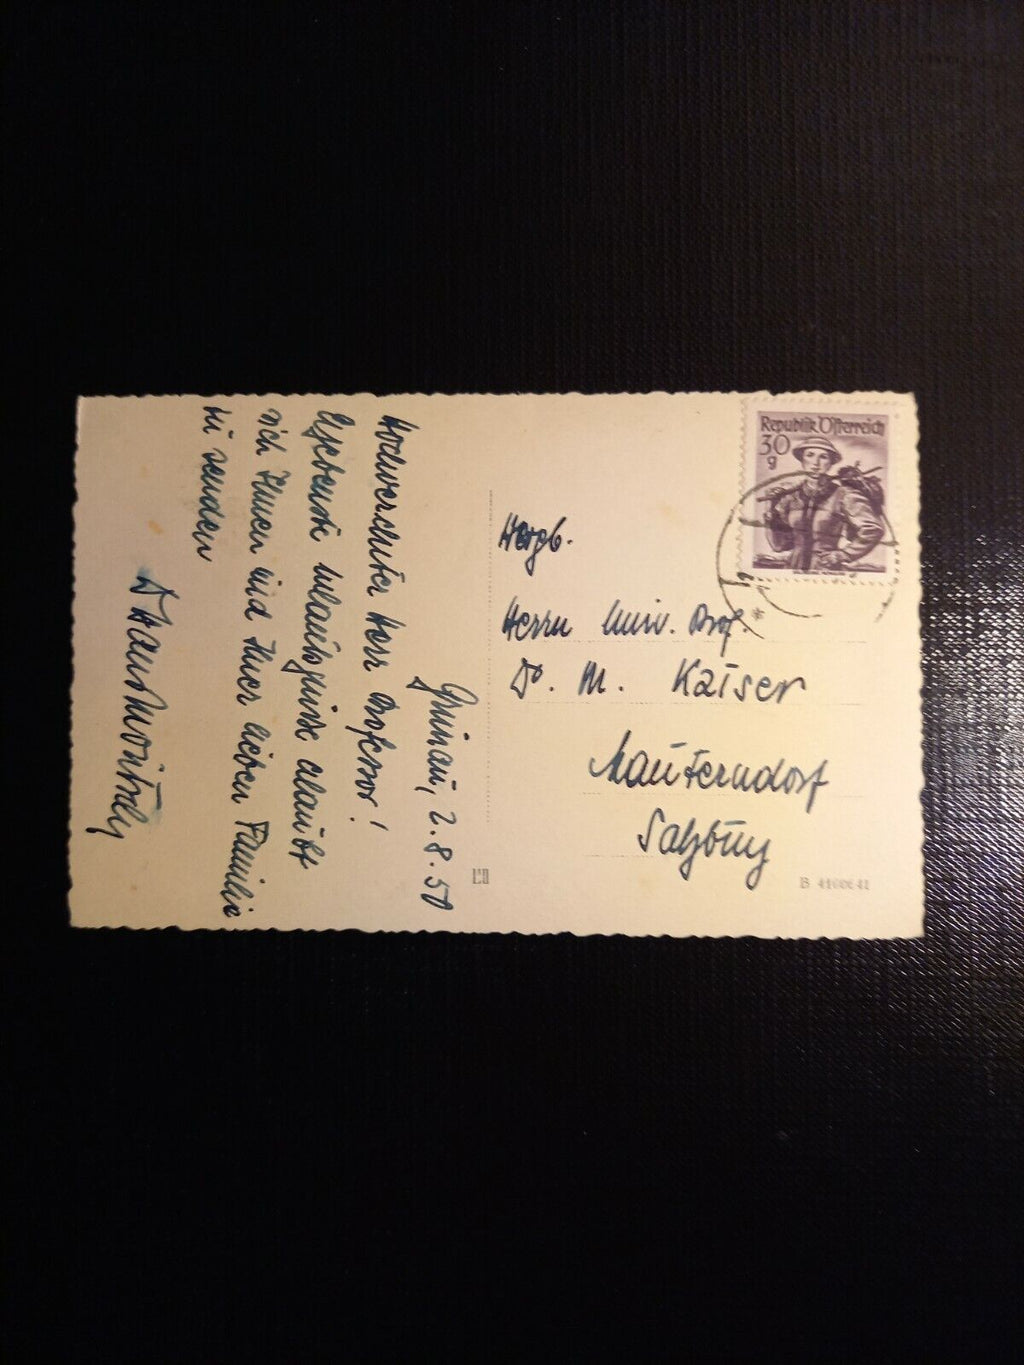 Grünau, 2.8.50
Hochverehrter Herr Professor!
Ergebenste Urlaubsgrüsse erlaubt
sich Ihnen und Ihrer lieben Familie
zu senden
Republik Österreich
30
g
Herrn Univ. Prof.
Dr. M. Kaiser
Mauterndorf
Salzburg